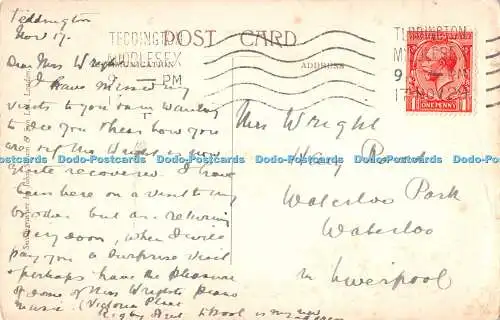 Teddington
Nov 17.
Dear Mrs Wright
I have missed my
visits to you & am wanting
to see you & hear how you
are & if Mr Wright is now
quite recovered. I have
been here on a visit to my
brother but am returning
very soon, when I will
pay you a surprise visit
& perhaps have the pleasure
of some of Miss Wright's piano
music. (Victoria Place
Rigby Street L'pool is my new
address
POST CARD
ADDRESS
TEDDINGTON
MIDDLESEX
9 — PM
TEDDINGTON
MIDDLESEX
9 — PM
17 NOV 24
ONE PENNY
Mrs Wright
Park
Waterloo Park
Waterloo
Nr Liverpool
Dodo-Postcards Dodo-Postcards Dodo-Postcards Dodo-Postcards Dodo-Postcards Dodo-Postcards